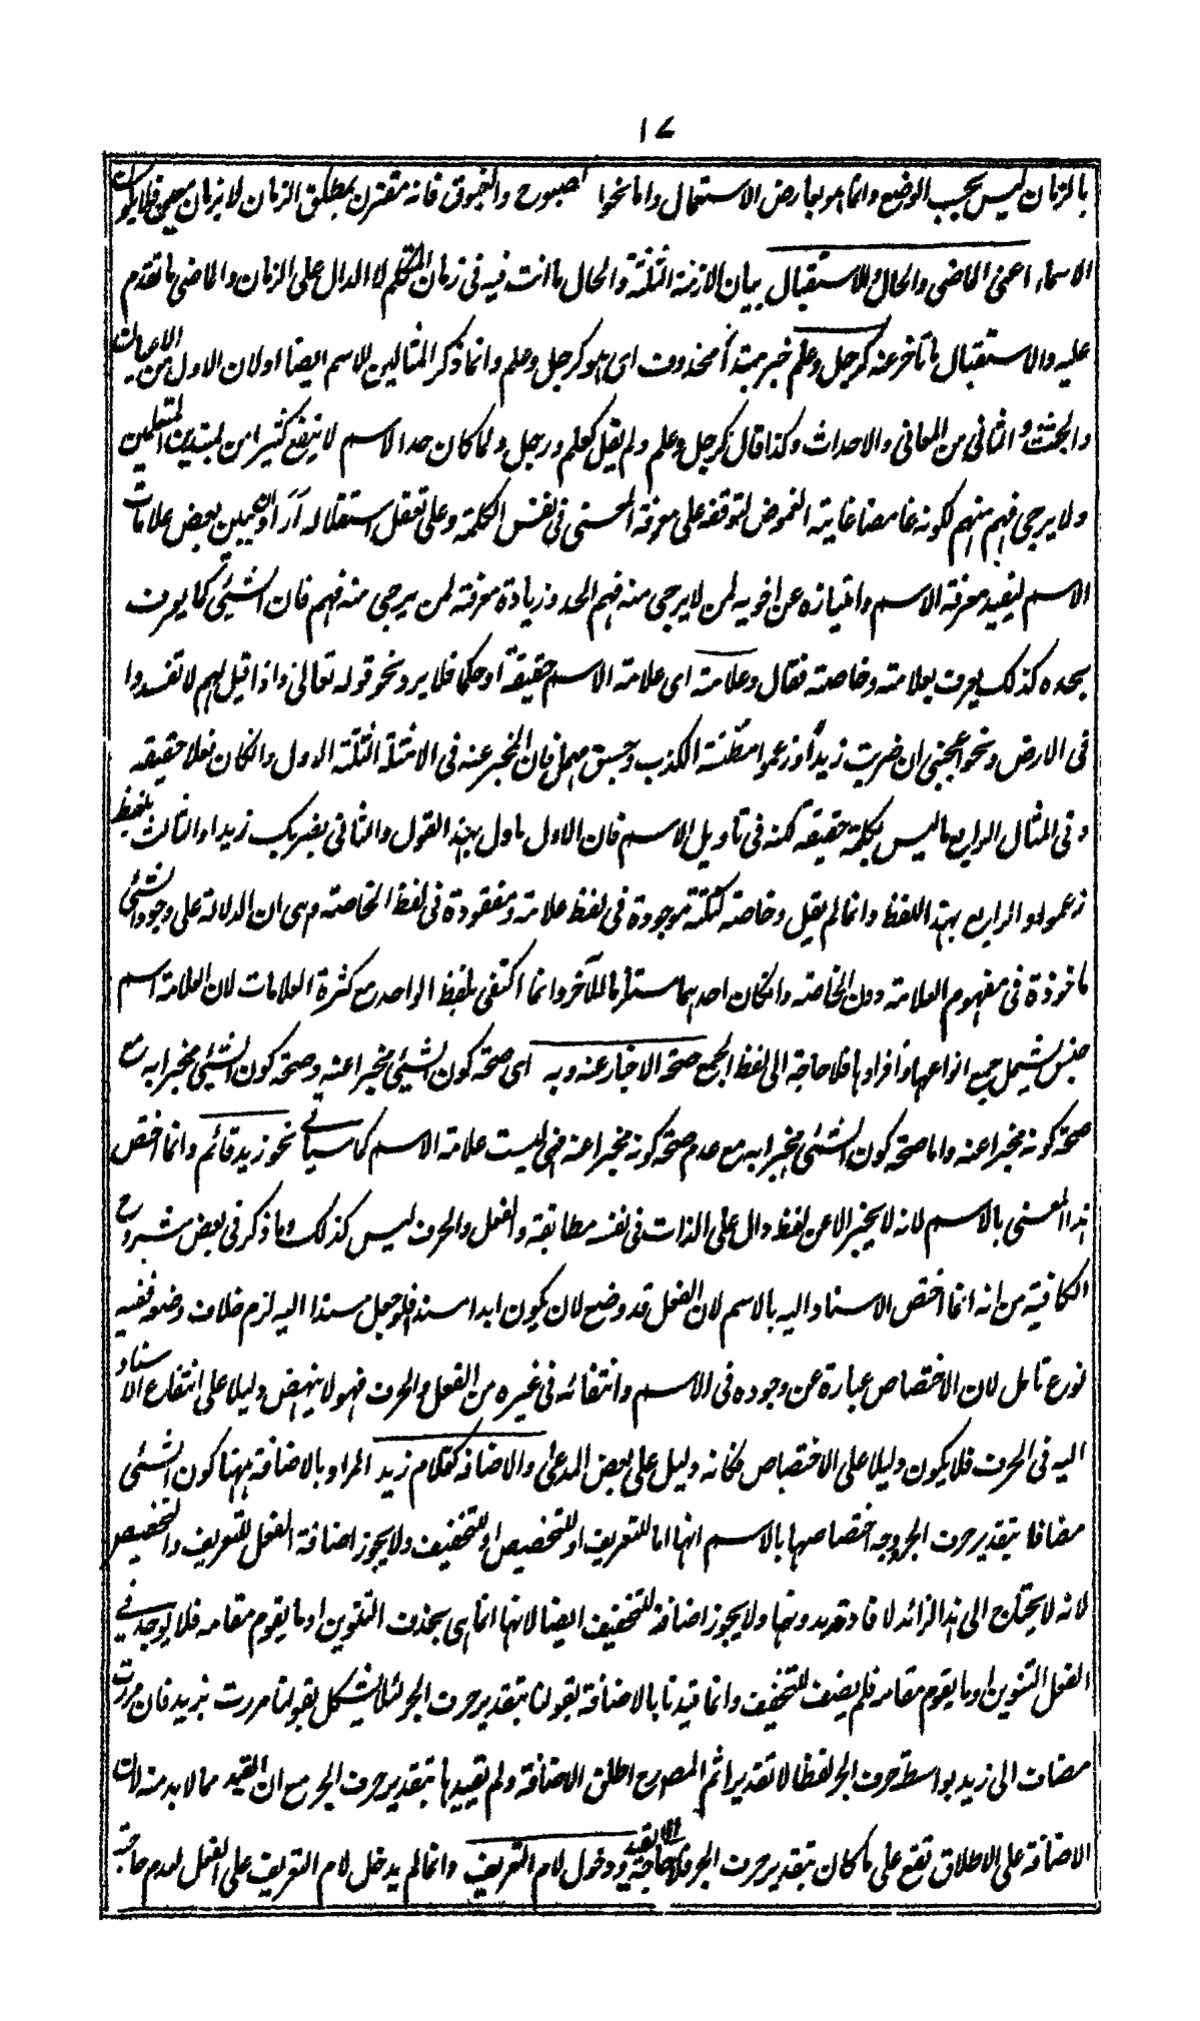 ١٧
بالزمان ليس بحسب الوضع وانما هو بعارض الاستعمال واما نحو الصبوح والغبوق فانه مقترن بمطلق الزمان لا بزمان معين فلا يكون
الاسماء اعنى الماضى والحال والاستقبال بيان الازمنة الثلثة والحال ما انت فيه فى زمان التكلم لا الدال على الزمان والماضى ما تقدم
عليه والاستقبال ما تاخر عنه كرجل وعلم خبر مبتدأ محذوف اى هو كرجل وعلم وانما ذكر المثالين للاسم ايضا اولان الاول من الاعيان
والجثث والثانى من المعانى والاحداث وكذا قال كرجل وعلم ولم يقل كعلم ورجل ولما كان حد الاسم لا ينفع كثيرا من المبتدئين المتعلمين
ولا يرجى فهم منهم لكونه غامضا غاية الغموض لتوقفه على معرفة المعنى فى نفس الكلمة وعلى تعقل استقلاله اراد ان يبين بعض علامات
الاسم ليفيد معرفة الاسم وامتيازه عن اخويه لمن لا يرجى منه فهم الحد وزيادة معرفة لمن يرجى منه فهم فان الشيئ كما يعرف
بحده كذلك يعرف بعلامته وخاصته فقال وعلامته اى علامة الاسم حقيقة او حكما فلا يرد نحو قوله تعالى واذا قيل لهم لا تفسدوا
فى الارض ونحو اعجبنى ان ضربت زيدا وزعموا مظنة الكذب وجسق مهمل فان المخبر عنه فى الامثلة الثلثة الاول والكان فعلا حقيقة
وفى المثال الرابع ما ليس بكلمة حقيقة لكنه فى تاويل الاسم فان الاول ماول بهذا القول والثانى بضربك زيدا والثالث بلفظ
زعموا والرابع بهذا اللفظ وانما لم يقل وخاصته لنكتة موجودة فى لفظ علامة ومفقودة فى لفظ الخاصة وهى ان الدلالة على وجود الشيئ
ماخوذة فى مفهوم العلامة دون الخاصة والكان احدهما مستلزما للاخر وانما اكتفى بلفظ الواحد مع كثرة العلامات لان العلامة اسم
جنس يشمل جميع انواعها وافرادها فلا حاجة الى لفظ الجمع صحة الاخبار عنه وبه اى صحة كون الشيئ مخبرا عنه وصحة كون الشيئ مخبرا به مع
صحة كونه مخبرا عنه واما صحة كون الشيئ مخبرا به مع عدم صحة كونه مخبرا عنه فهى ليست علامة الاسم كما سياتى نحو زيد قائم وانما اختص
هذا المعنى بالاسم لانه لا يخبر الا عن لفظ دال على الذات فى نفسه مطابقة والفعل والحرف ليس كذلك وما ذكر فى بعض شروح
الكافية من انه انما اختص الاسناد اليه بالاسم لان الفعل قد وضع لان يكون ابدا مسندا فلو جعل مسندا اليه لزم خلاف وضعه ففيه
نوع تامل لان الاختصاص عبارة عن وجوده فى الاسم وانتفائه فى غيره من الفعل والحرف فهو لا ينهض دليلا على انتفاء الاسناد
اليه فى الحرف فلا يكون دليلا على الاختصاص فكانه دليل على بعض المدعى والاضافة كغلام زيد المراد بالاضافة ههنا كون الشيئ
مضافا بتقدير حرف الجر ووجه اختصاصها بالاسم انها اما للتعريف او للتخصيص او للتخفيف ولا يجوز اضافة الفعل للتعريف والتخصيص
لانه لا يحتاج الى هذا الزائد لافادته بدونها ولا يجوز اضافة للتخفيف ايضا لانها انما هى بحذف التنوين او ما يقوم مقامه فلا يوجد فى
الفعل التنوين او ما يقوم مقامه فلم يضف للتخفيف وانما قيدنا بالاضافة بقولنا بتقدير حرف الجر لئلا يشكل بقولنا مررت بزيد فان مررت
مضاف الى زيد بواسطة حرف الجر لفظا لا تقديرا ثم المصنف اطلق الاضافة ولم يقيدها بتقدير حرف الجر مع ان القيد مما لا بد منه لان
الاضافة على الاطلاق تقع على ما كان بتقدير حرف الجر فلا حاجة الى القيد ودخول لام التعريف وانما لم يدخل لام التعريف على الفعل لعدم حاجته